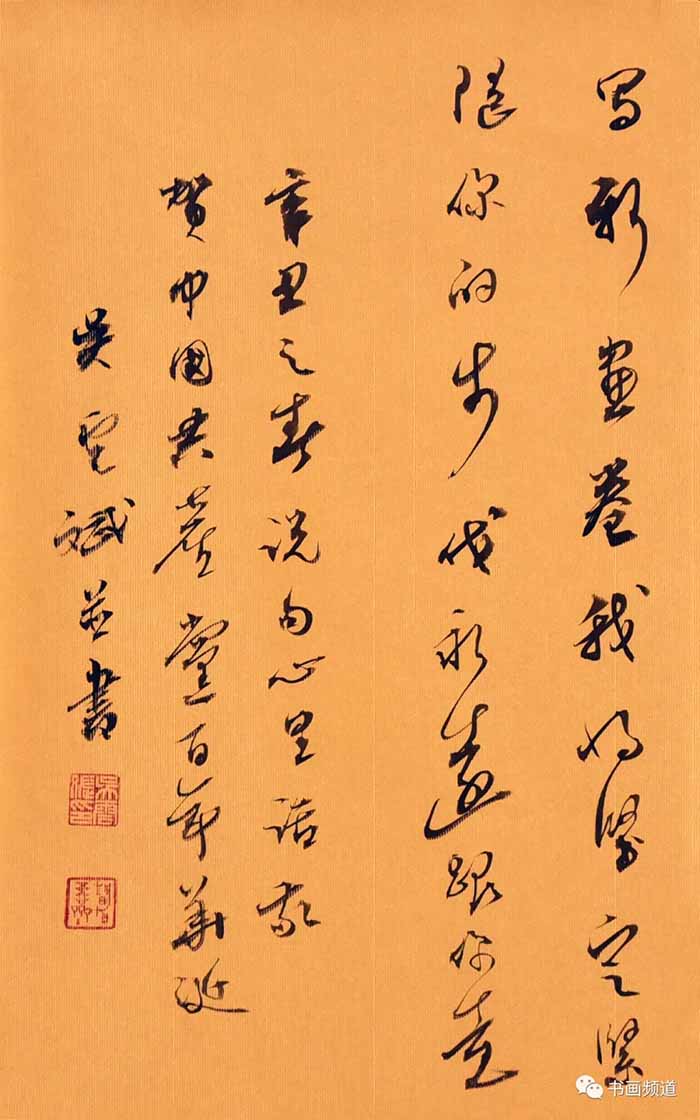 写新画卷我将坚定紧
随你的步伐永远跟你走
辛丑之春说句心里话敬
贺中国共产党百年华诞
吴云斌并书
书画频道